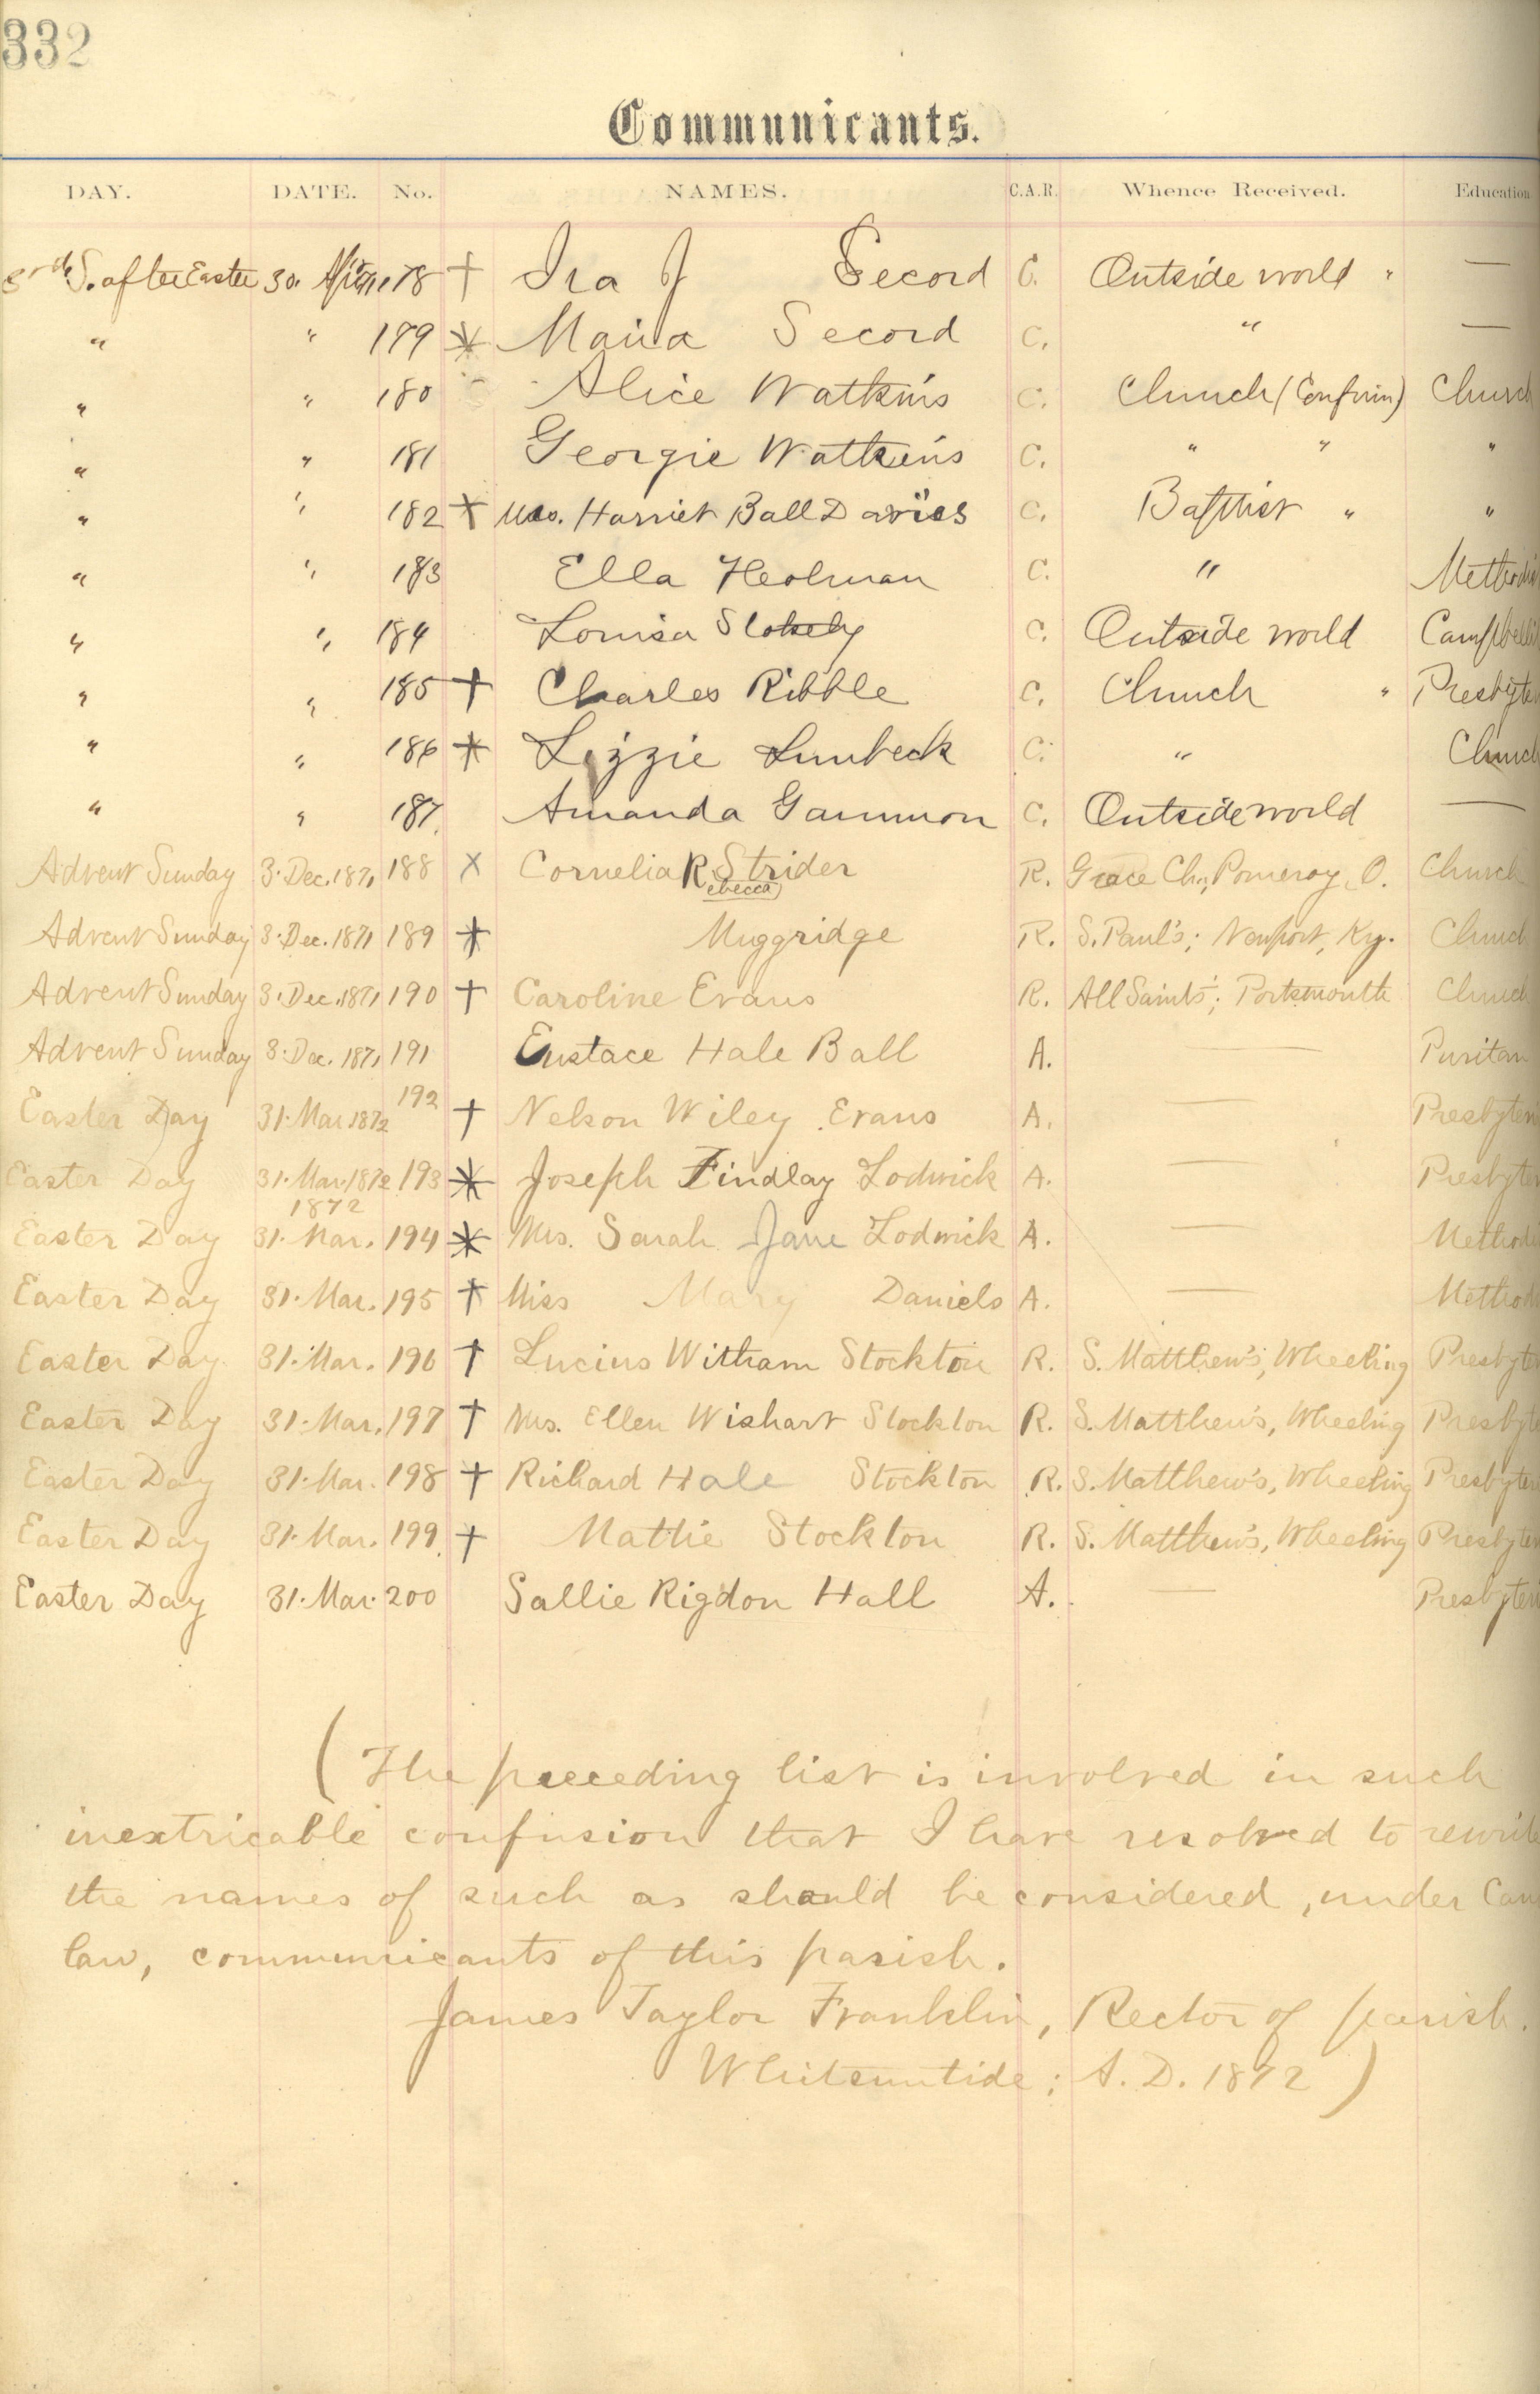 332
Communicants.
DAY. DATE. No. NAMES. C.A.R. Whence Received. Education
3rd S. after Easter 30. 178 † Ira J Secord C. Outside world " —
" " 179 * Maria Secord C. " —
" " 180 Alice Watkins C. Church (Confirm) Church
" " 181 Georgie Watkins C. " " "
" " 182 † Mrs. Harriet Ball Davies C. Baptist " "
" " 183 Ella Heolman C. " Methodis
" " 184 Louisa Stokely C. Outside world Campbelli
" " 185 † Charles Ribble C. Church " Presbyte
" " 186 * Lizzie Lumbeck C. " Church
" " 187 Amanda Gammon C. Outside world —
Advent Sunday 3. Dec. 1871 188 X Cornelia R(ebecca) Strider R. Grace Ch., Pomeroy, O. Church
Advent Sunday 3. Dec. 1871 189 * Muggridge R. S. Paul's; Newport, Ky. Church
Advent Sunday 3. Dec. 1871 190 † Caroline Evans R. All Saints'; Portsmouth Church
Advent Sunday 3. Dec. 1871 191 Eustace Hale Ball A. — Puritan
Easter Day 31. Mar 1872 192 † Nelson Wiley Evans A. — Presbyteri
Easter Day 31. Mar. 1872 193 * Joseph Findlay Lodwick A. — Presbyter
Easter Day 31. Mar. 1872 194 * Mrs. Sarah Jane Lodwick A. — Methodi
Easter Day 31. Mar. 195 † Miss Mary Daniels A. — Methodi
Easter Day 31. Mar. 196 † Lucius Witham Stockton R. S. Matthew's, Wheeling Presbyter
Easter Day 31. Mar. 197 † Mrs. Ellen Wishart Stockton R. S. Matthew's, Wheeling Presbyte
Easter Day 31. Mar. 198 † Richard Hale Stockton R. S. Matthew's, Wheeling Presbyter
Easter Day 31. Mar. 199 † Mattie Stockton R. S. Matthew's, Wheeling Presbyter
Easter Day 31. Mar. 200 Sallie Rigdon Hall A. — Presbyteri
(The preceding list is involved in such
inextricable confusion that I have resolved to rewrite
the names of such as should be considered, under Can
law, communicants of this parish.
James Taylor Franklin, Rector of parish.
Whitsuntide; A. D. 1872)